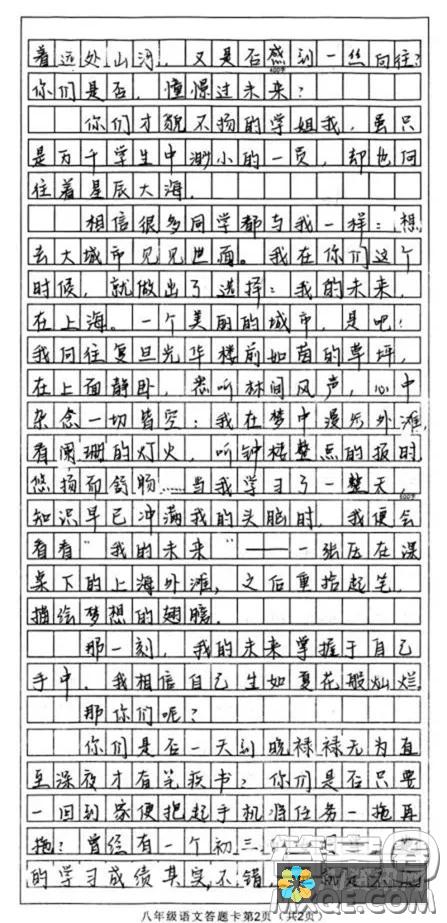 着远处山河，又是否感到一丝向往？
你们是否，憧憬过未来？
你们才貌不扬的学姐我，虽只
是万千学生中渺小的一员，却也向
往着星辰大海。
相信很多同学都与我一样：想
去大城市见见世面。我在你们这个
时候，就做出了选择：我的未来，
在上海。一个美丽的城市，是吧！
我向往复旦光华楼前如茵的草坪，
在上面静卧，悉听林间风声，心中
杂念一切皆空；我在梦中漫步外滩，
看阑珊的灯火，听钟楼整点的报时，
悠扬而舒畅……当我学习了一整天，
知识早已冲满我的头脑时，我便会
看看“我的未来”——一张压在深
桌下的上海外滩，之后重拾起笔，
描绘梦想的翅膀。
那一刻，我的未来掌握于自己
手中，我相信自己生如夏花般灿烂。
那你们呢？
你们是否一天到晚碌碌无为直
至深夜才有笔疾书？你们是否只要
一回到家便把起手机将任务一拖再
拖？曾经有一个初三
的学习成绩其实不错，
八年级语文答题卡第2页（共2页）